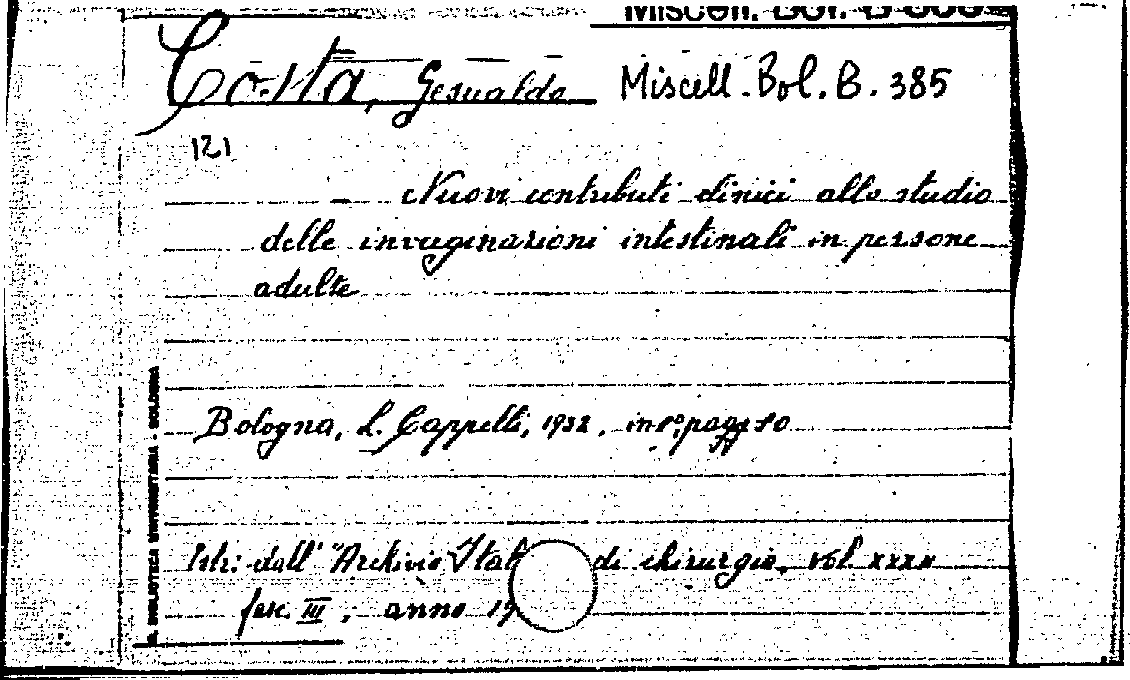 Miscell. Bol. B
Costa, Gesualdo Miscell. Bol. B. 385
121
Nuovi contributi clinici allo studio
delle invaginazioni intestinali in persone
adulte
Bologna, L. Cappelli, 1932, in 8° pagg. 10
Estr: dall' "Archivio Ital di chirurgia, vol. XXXII
fasc. III, anno 19
BIBLIOTECA UNIVERSITARIA - BOLOGNA